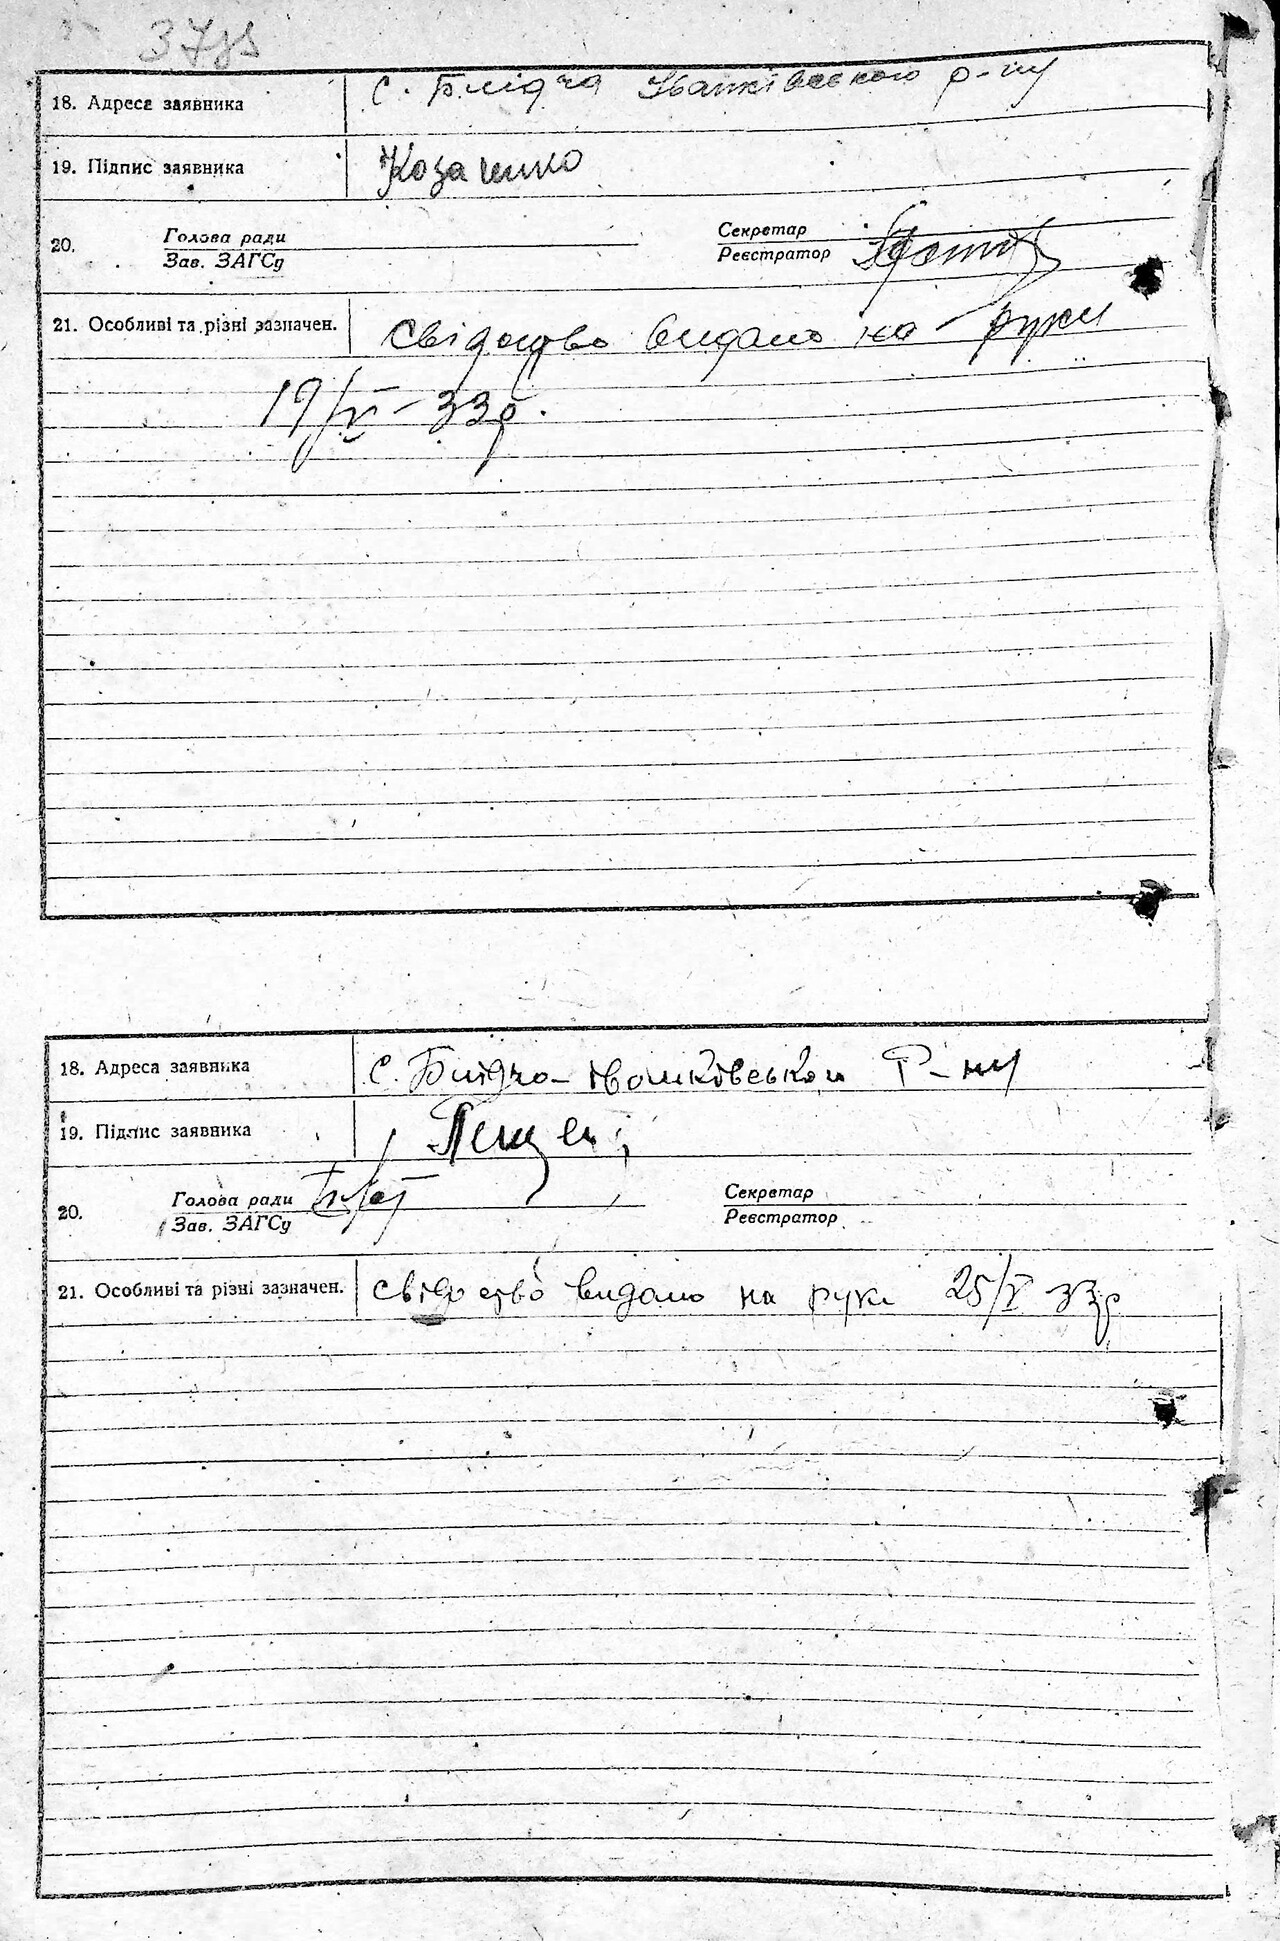 37зв
18. Адреса заявника с. Блідча Іванківського р-ну
19. Підпис заявника Козаченко
20. Голова ради Секретар
Зав. ЗАГСу Реєстратор
21. Особливі та різні зазначен. Свідоцтво видано на руки
19/V - 33р.
18. Адреса заявника с. Блідча Іванківського Р-ну
19. Підпис заявника
20. Голова ради Секретар
Зав. ЗАГСу Реєстратор
21. Особливі та різні зазначен. свідоцтво видано на руки 25/V 33р